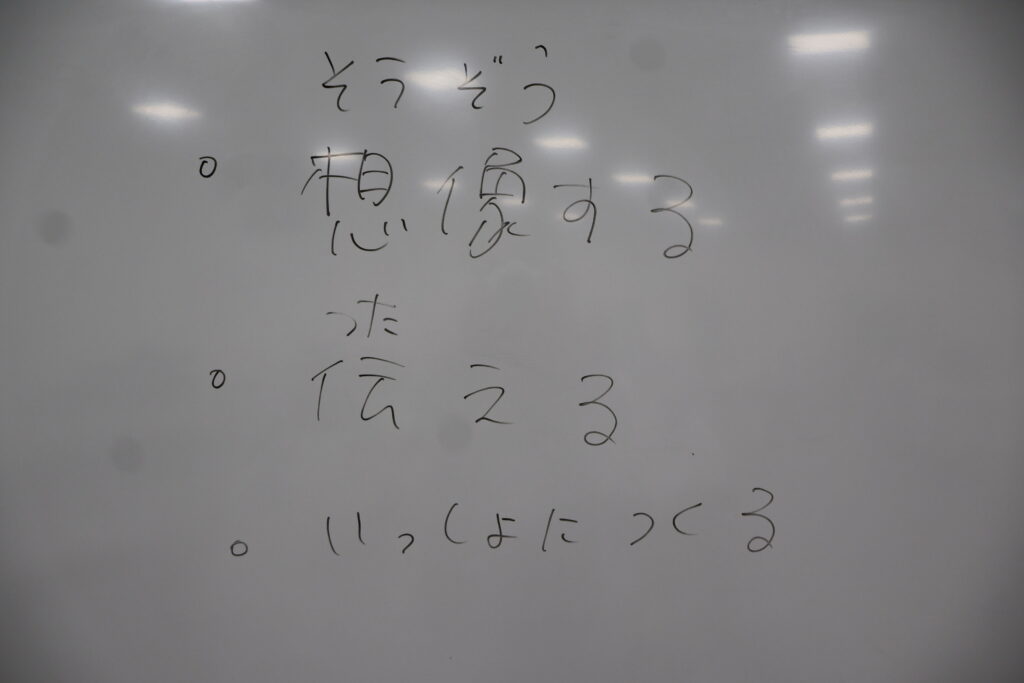 そうぞう
○ 想像する
つた
○ 伝える
○ いっしょにつくる